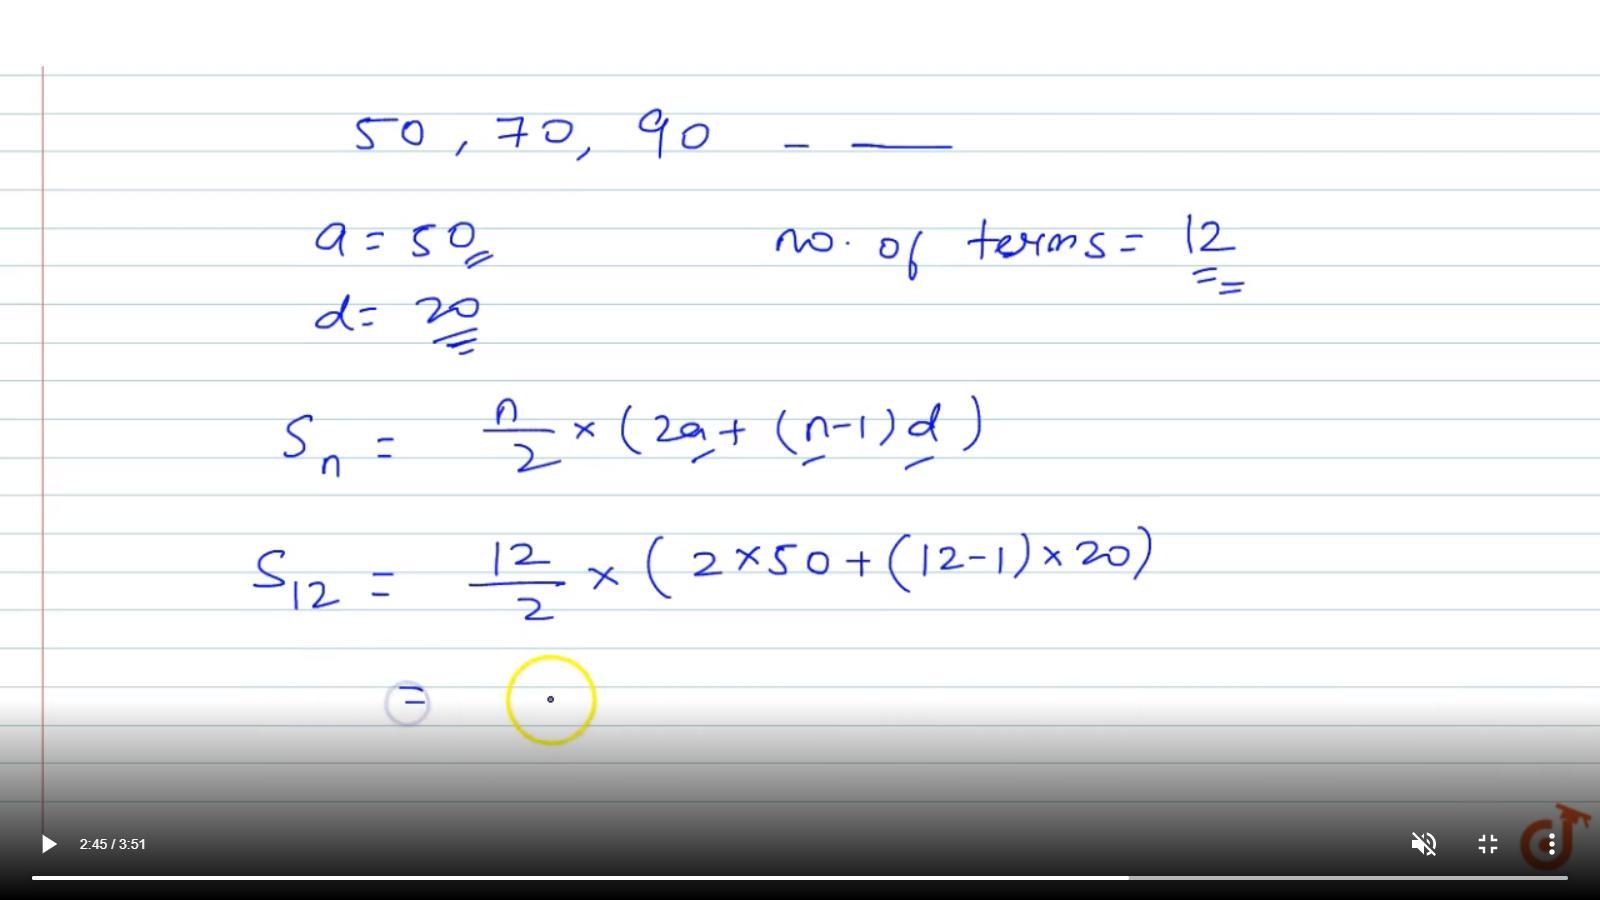 50, 70, 90 - —
a = 50 no. of terms = 12
d = 20
Sn = n/2 × (2a + (n-1)d)
S12 = 12/2 × (2×50+(12-1)×20)
=
2:45 / 3:51